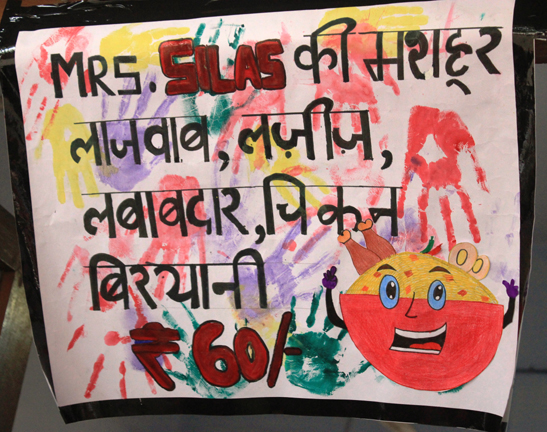 MRS. SILAS की मशहूर
लाजवाब, लज़ीज़,
लबाबदार, चिकन
बिरयानी
₹ 60/-